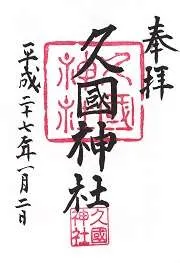 奉拝
久國神社
平成二十七年一月二日
久國神社
久國神社